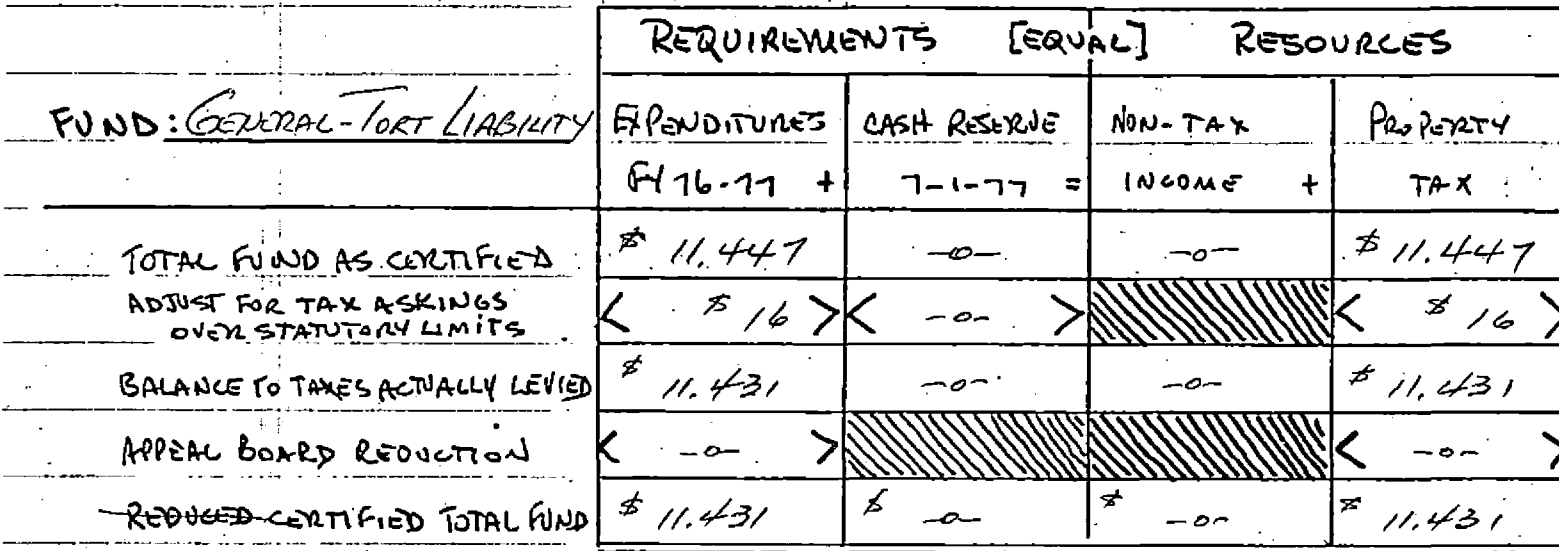 REQUIREMENTS [EQUAL] RESOURCES
FUND: GENERAL-TORT LIABILITY EXPENDITURES CASH RESERVE NON-TAX PROPERTY
FY 76-77 + 7-1-77 = INCOME + TAX
TOTAL FUND AS CERTIFIED $ 11.447 -0- -0- $ 11.447
ADJUST FOR TAX ASKINGS
OVER STATUTORY LIMITS < $ 16 > < -0- > < $ 16 >
BALANCE TO TAXES ACTUALLY LEVIED $ 11.431 -0- -0- $ 11.431
APPEAL BOARD REDUCTION < -0- > < -0- >
REDUCED CERTIFIED TOTAL FUND $ 11.431 $ -0- $ -0- $ 11.431